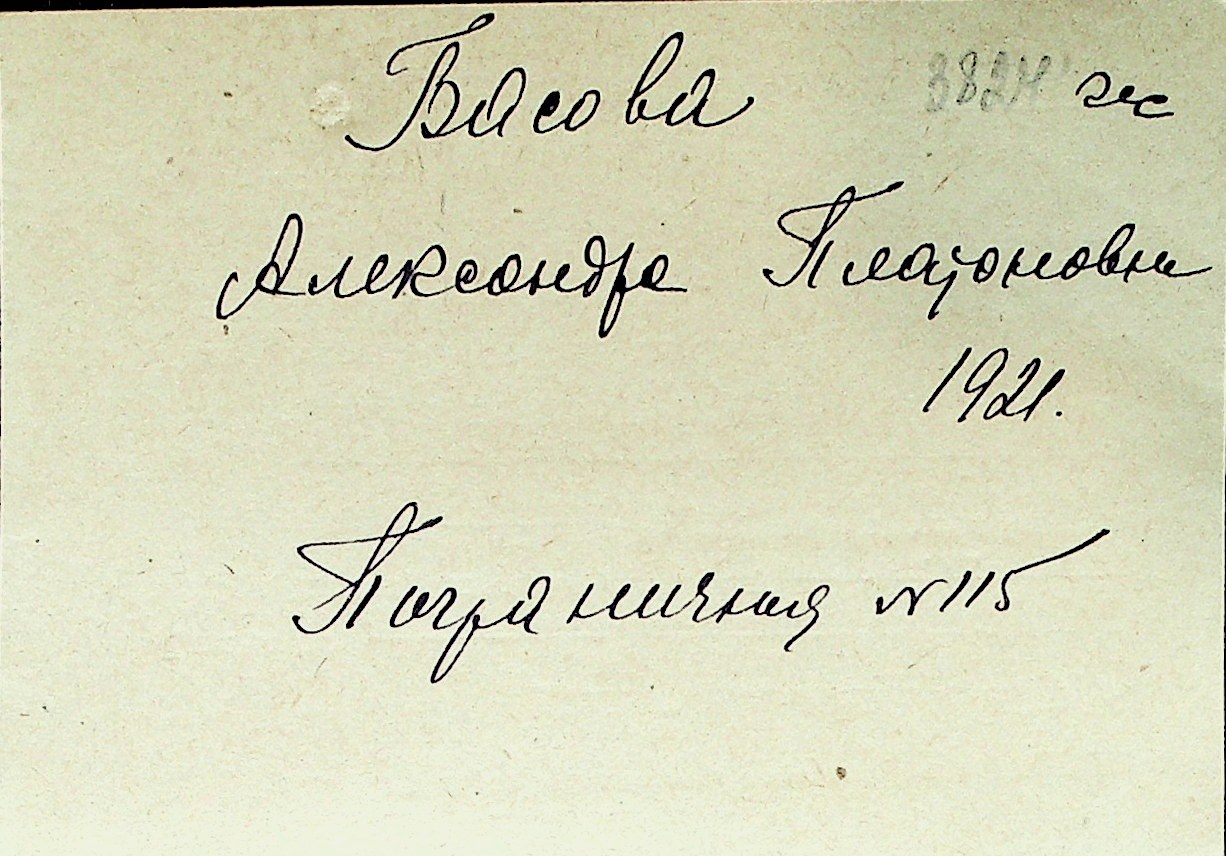 Басова
Александра Платоновна
1921.
Пограничная №115